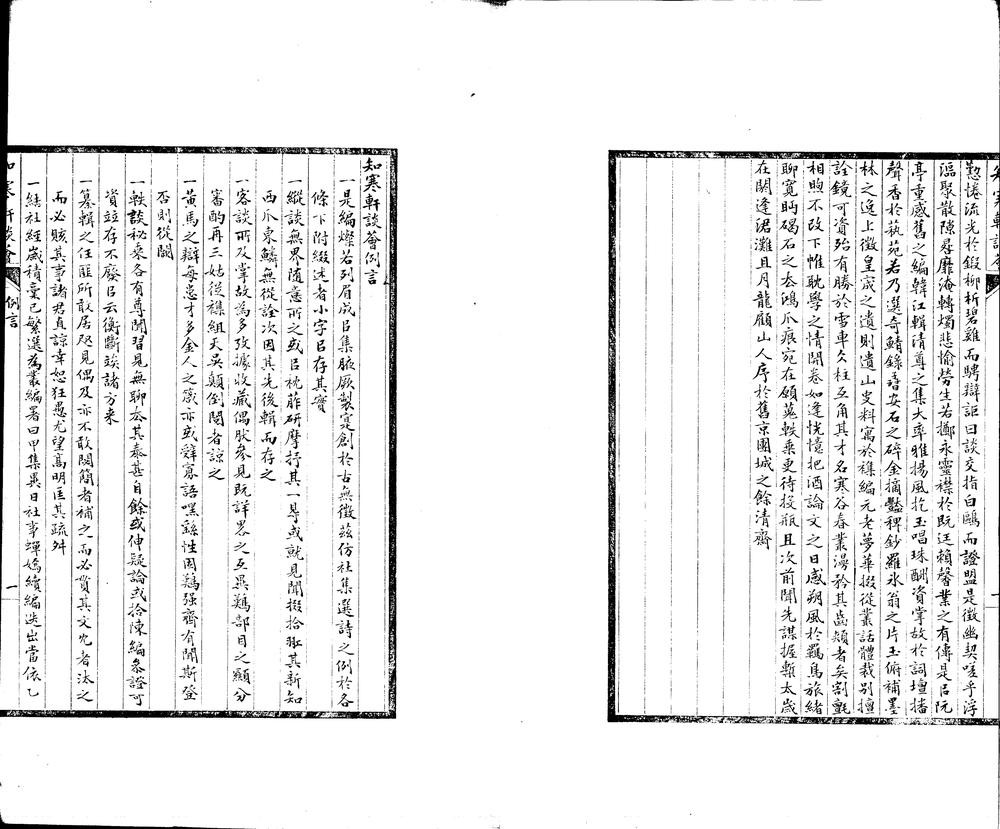 知寒軒談薈
勤惓流光於鍛柳析碧雞而騁辯詎曰談交指白鷗而證盟是徵幽契嗟乎浮
漚聚散隙晷靡淹轉燭悲愉勞生若擲永靈襟於既迋賴馨業之有傳是㠯阮
亭重感舊之編韓江輯清尊之集大率雅揚風扢玉唱珠酬資掌故於詞壇播
聲香於藝苑若乃選奇鯖錄尋安石之碎金摘豔稗鈔羅氷翁之片玉俯補墨
林之逸上徵皇宬之遺則遺山史料寓於襍編元老夢華掇從叢話體裁別擅
詮鏡可資殆有勝於雪車久柱互角其才名寒谷春叢漫矜其齒頰者矣割氈
相煦不改下帷耽學之情開卷如逢恍憶把酒論文之日感朔風於羈馬旅緒
聊寬眄碣石之厺鴻爪痕宛在願蒐軼乘更待投瓶且次前聞先謀握槧太歲
在閼逢涒灘且月龍顧山人序於舊京團城之餘清齋
一
知寒軒談薈例言
一是編燦若列眉成㠯集腋厥製寔創於古無徵茲仿社集選詩之例於各
條下附綴述者小字㠯存其實
一縱談無界隨意所之或㠯枕葄研摩抒其一㝵或就見聞掇拾䟽其新知
西爪東鱗無從詮次因其先後輯而存之
一客談所及掌故為多攷據收藏偶肰參見既詳畧之互異難部目之顯分
審酌再三姑從襍組天吳顛倒閱者諒之
一黃馬之辯每患才多金人之箴亦或辭寡語嘿繇性固難强齊有聞斯登
否則從闕
一軼談秘乘各有尊聞習見無聊厺其泰甚自餘或伸疑論或拾陳編參證可
資竝存不廢㠯云衡斷竢諸方來
一纂輯之任匪所敢居咫見偶及亦不敢閟簡者補之而必贯其文冗者汰之
而必賅其事諸君真諒幸恕狂愚尤望高明匡其疏舛
一結社經歲積稾已繁選為叢編署曰甲集異日社事蟬嫣續編迭出當依乙
知寒軒談薈
例言
一